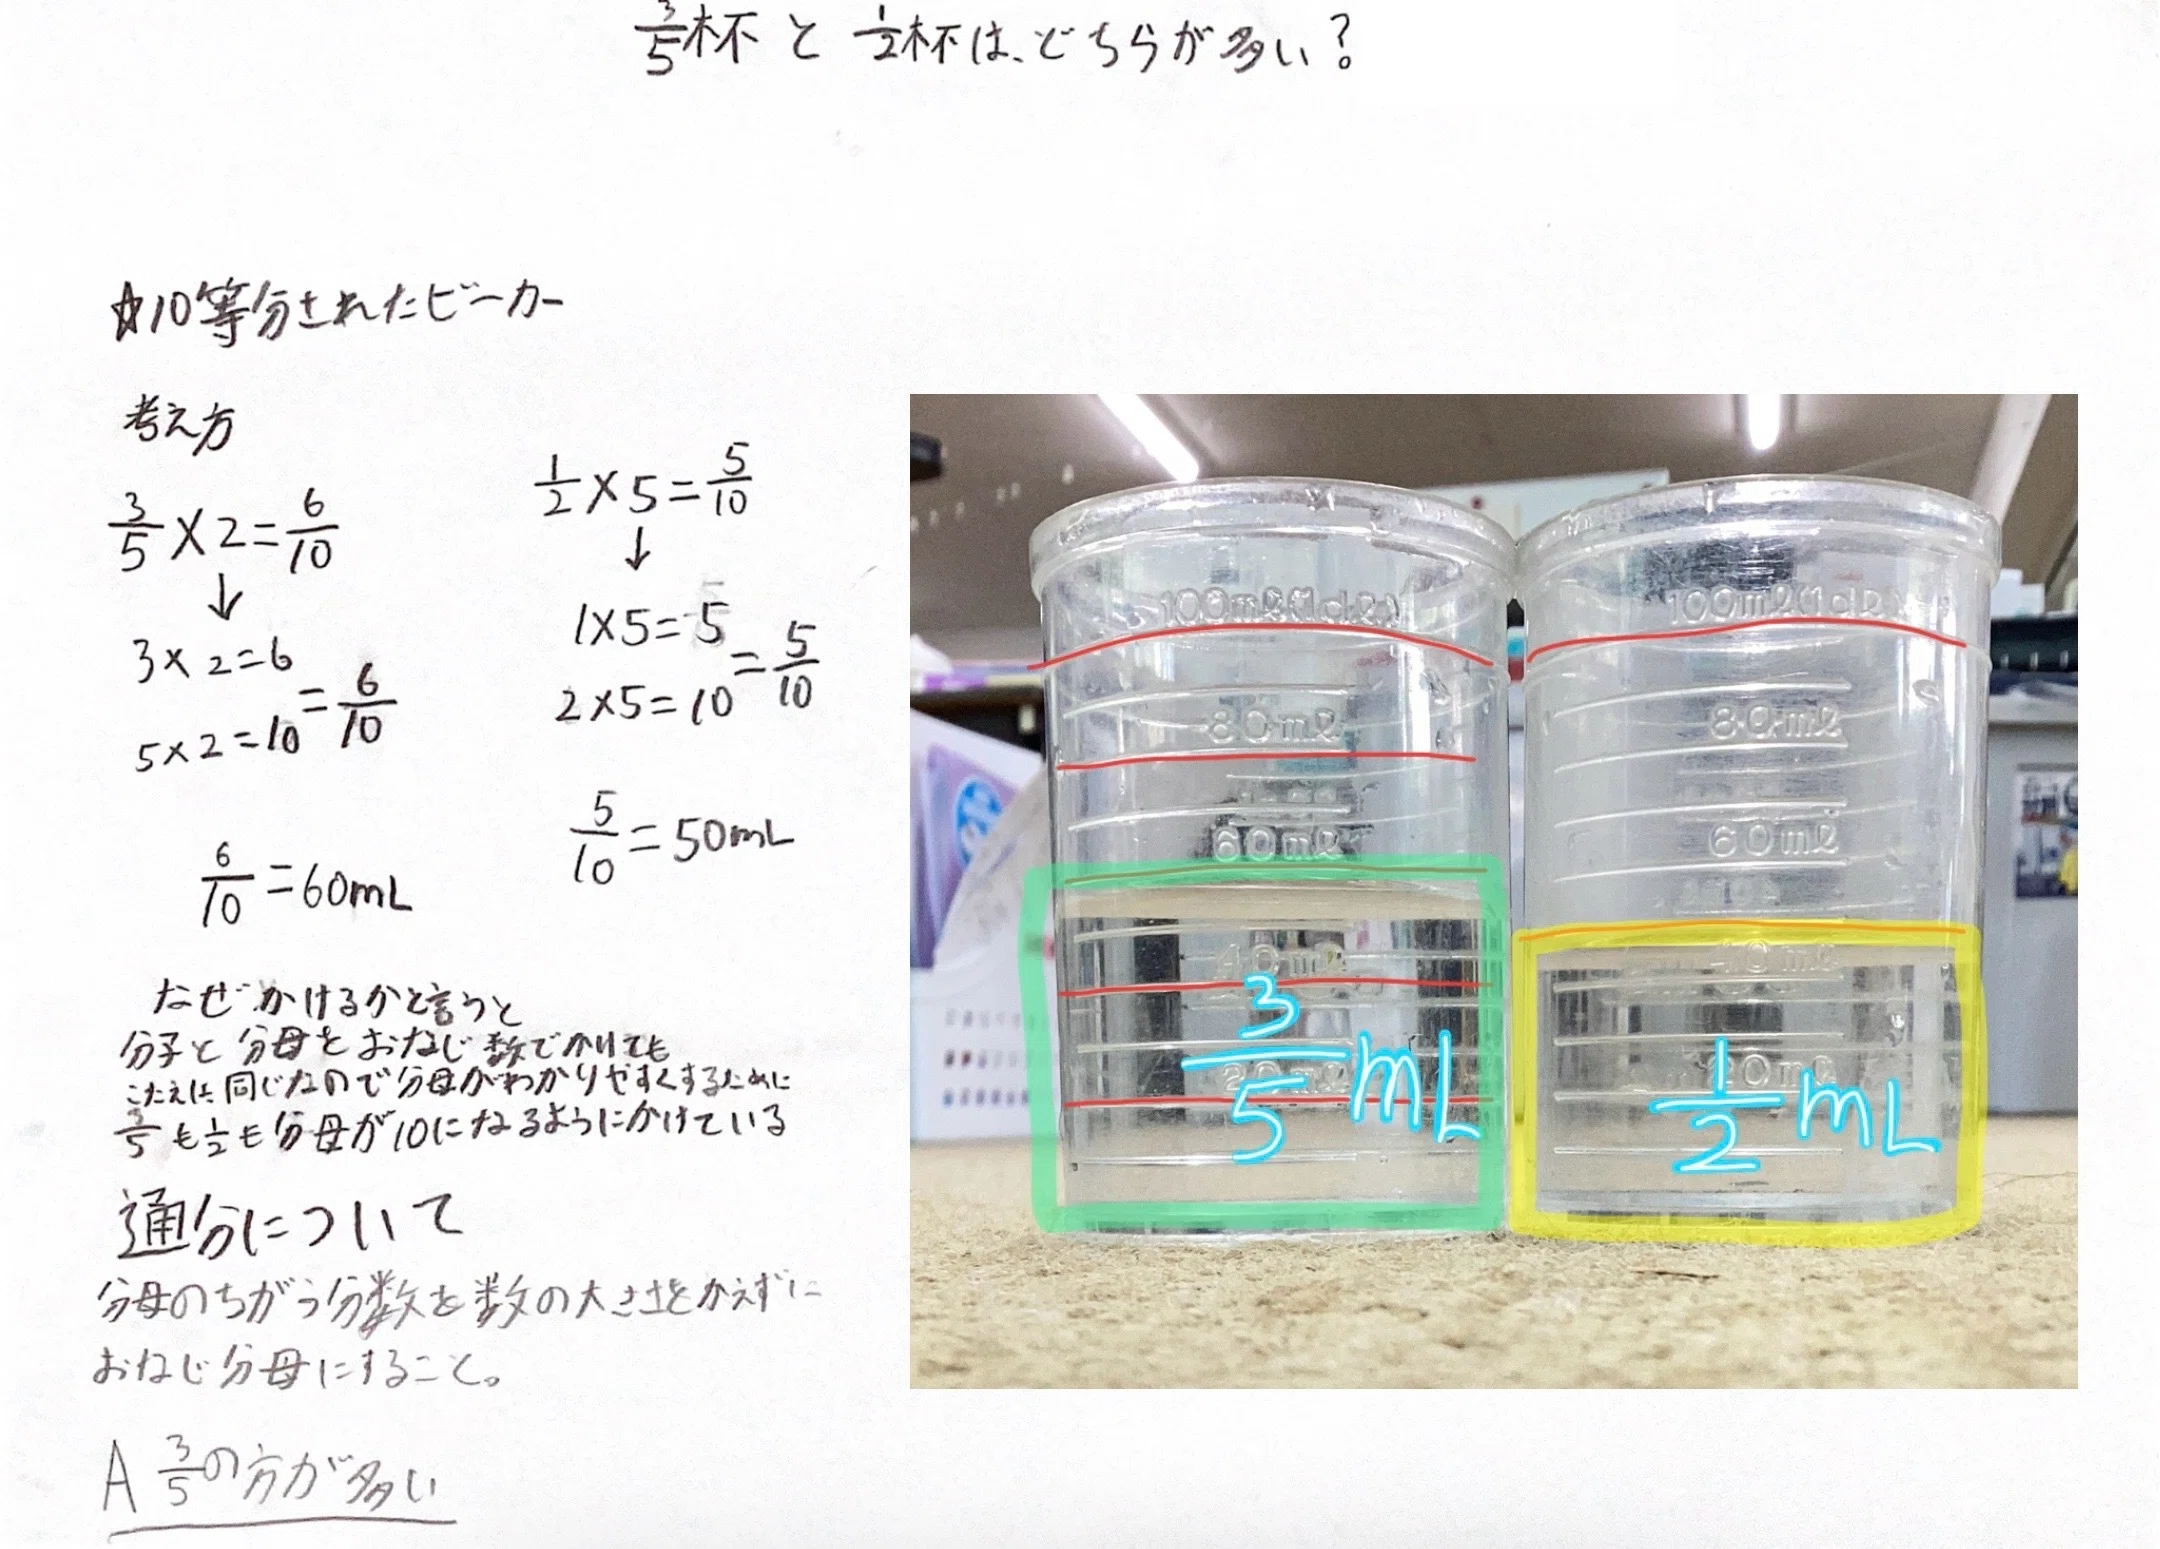 3/5杯と1/2杯は、どちらが多い？
☆10等分されたビーカー
考え方
3/5×2=6/10
↓
3×2=6
5×2=10
=6/10
6/10=60mL
1/2×5=5/10
↓
1×5=5
2×5=10
=5/10
5/10=50mL
なぜかけるかと言うと
分子と分母をおなじ数でかけても
こたえは同じなので分母がわかりやすくするために
3/5も1/2も分母が10になるようにかけている
通分について
分母のちがう分数を数の大きさをかえずに
おなじ分母にすること。
A 3/5の方が多い
100ml(1dl)
80ml
60ml
40ml
20ml
3/5mL
100ml(1dl)
80ml
60ml
40ml
20ml
1/2mL